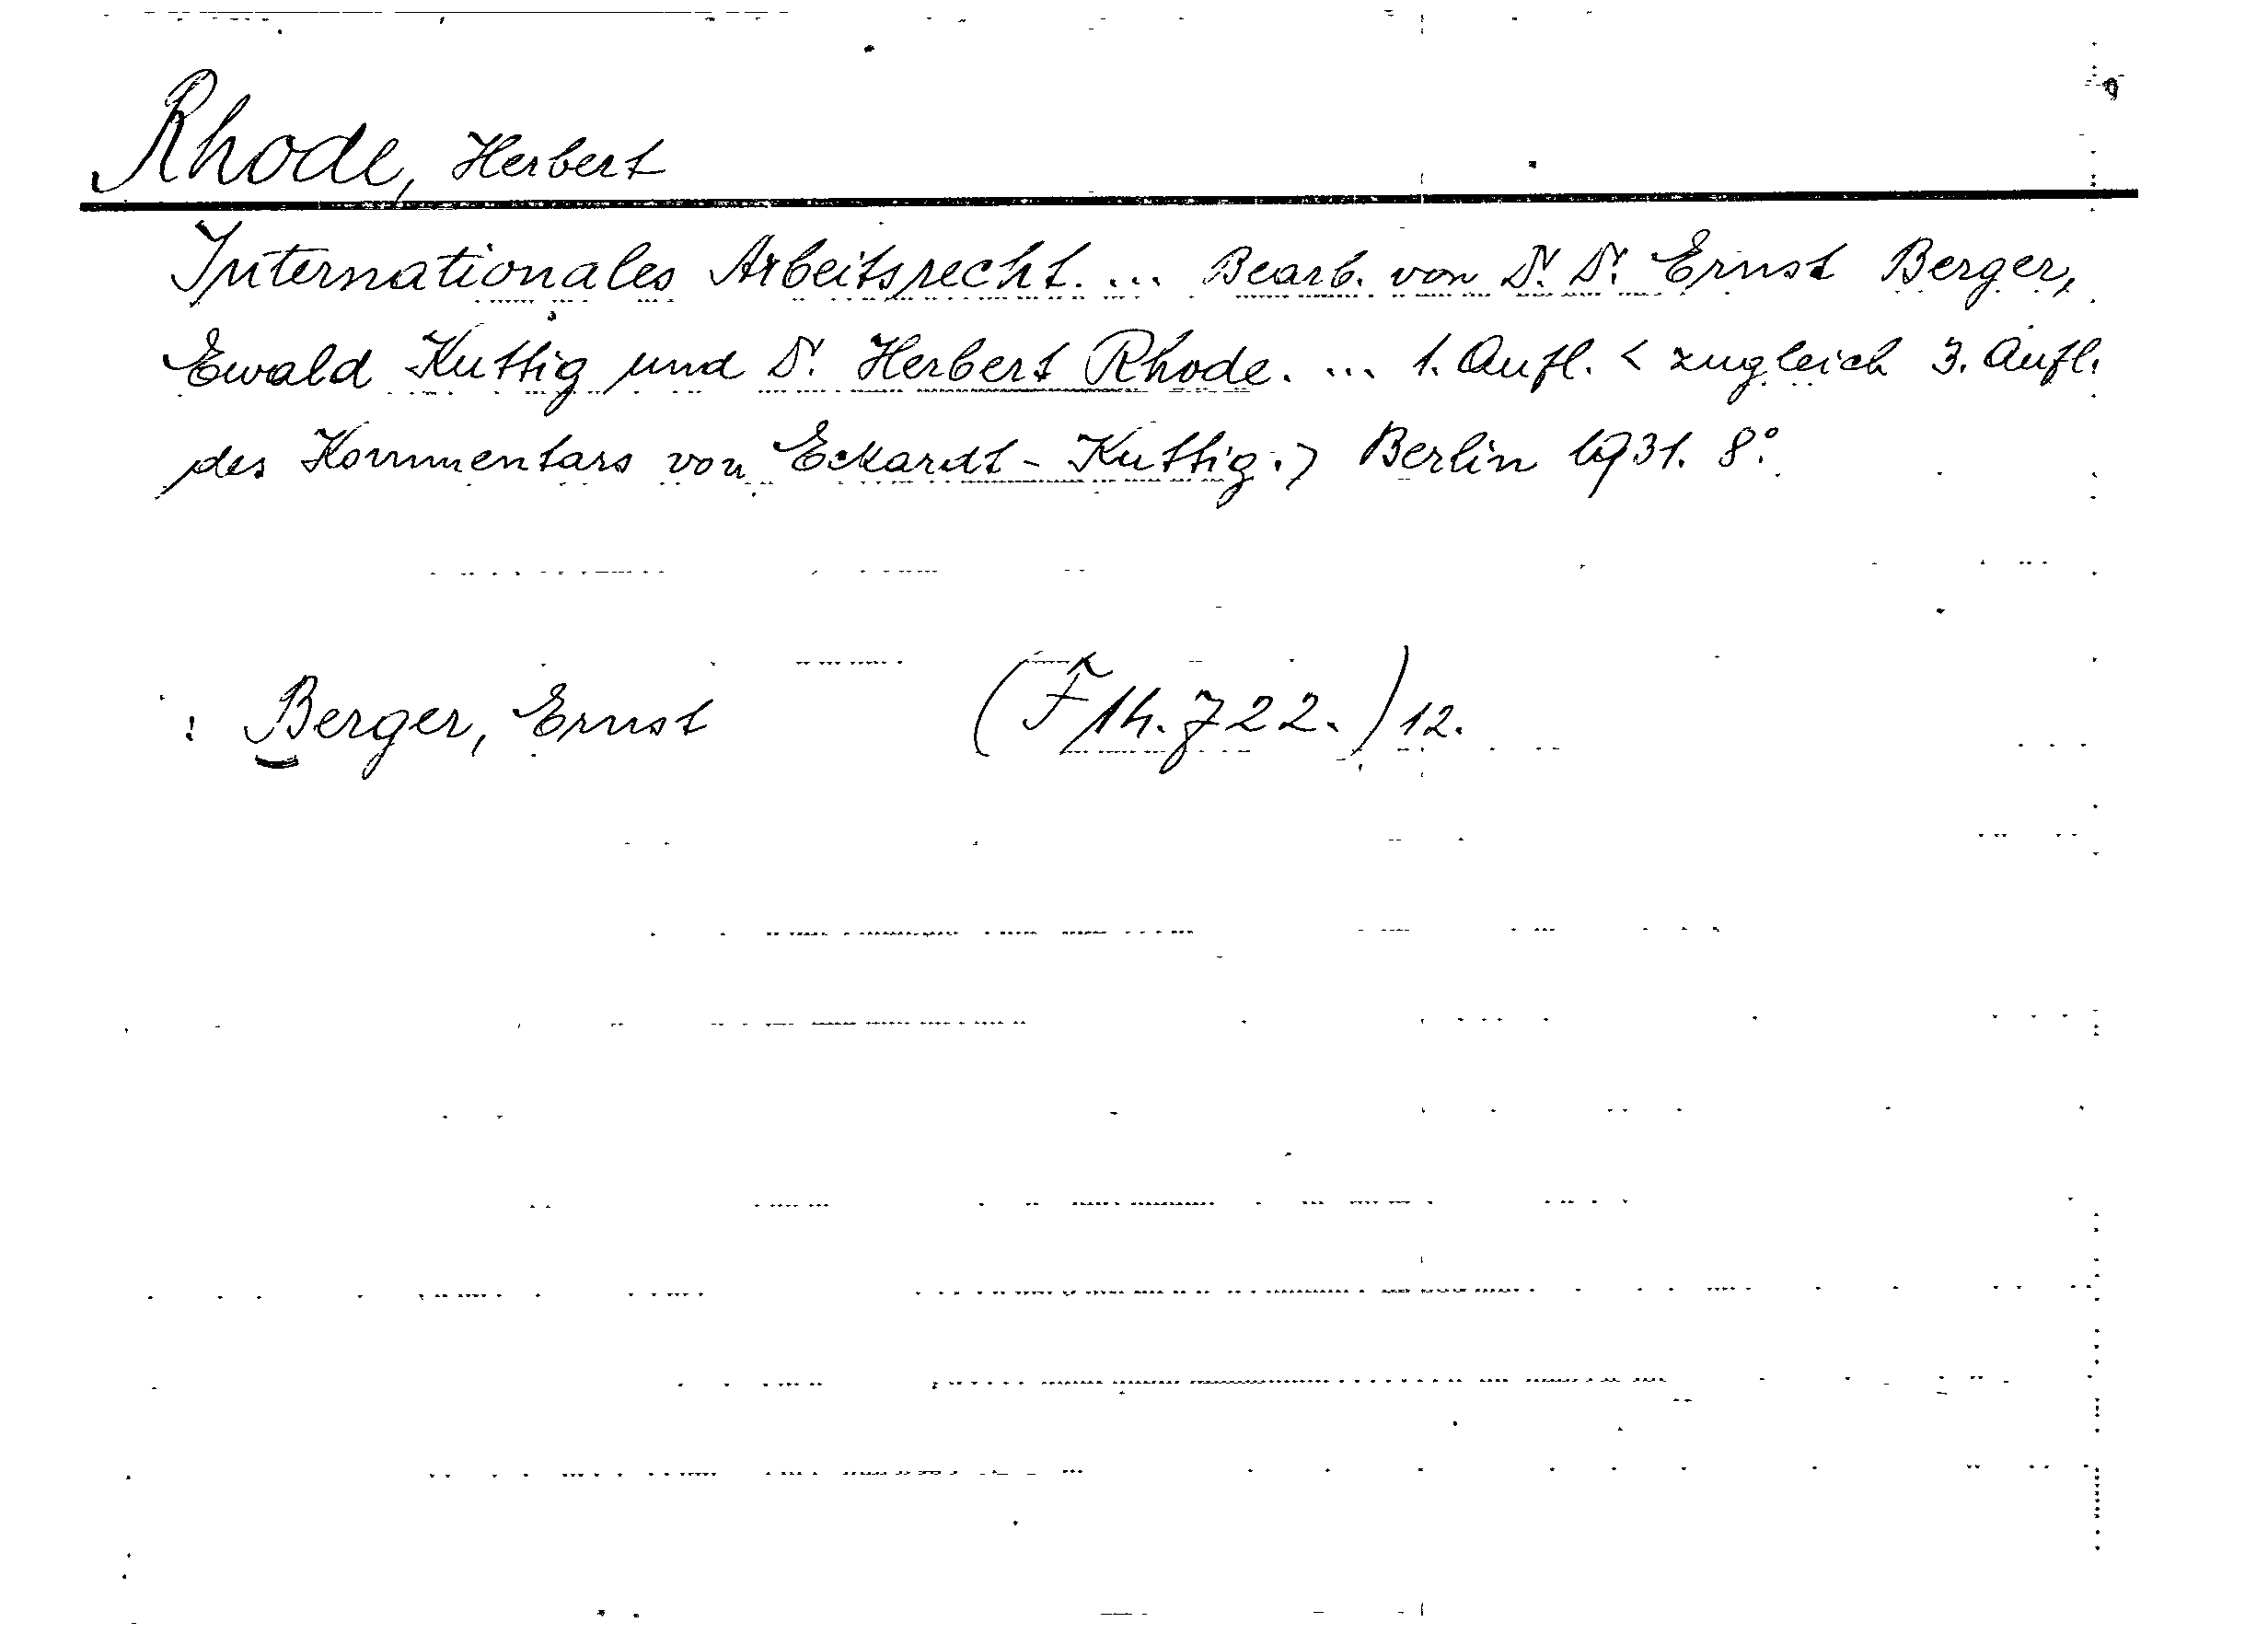 Rhode, Herbert
Internationales Arbeitsrecht. ... Bearb. von Dr. Dr. Ernst Berger,
Ewald Kuttig und Dr. Herbert Rhode. ... 1. Aufl. < zugleich 3. Aufl.
des Kommentars von Eckardt-Kuttig.> Berlin 1931. 8°.
: Berger, Ernst (F 14.722.) 12.